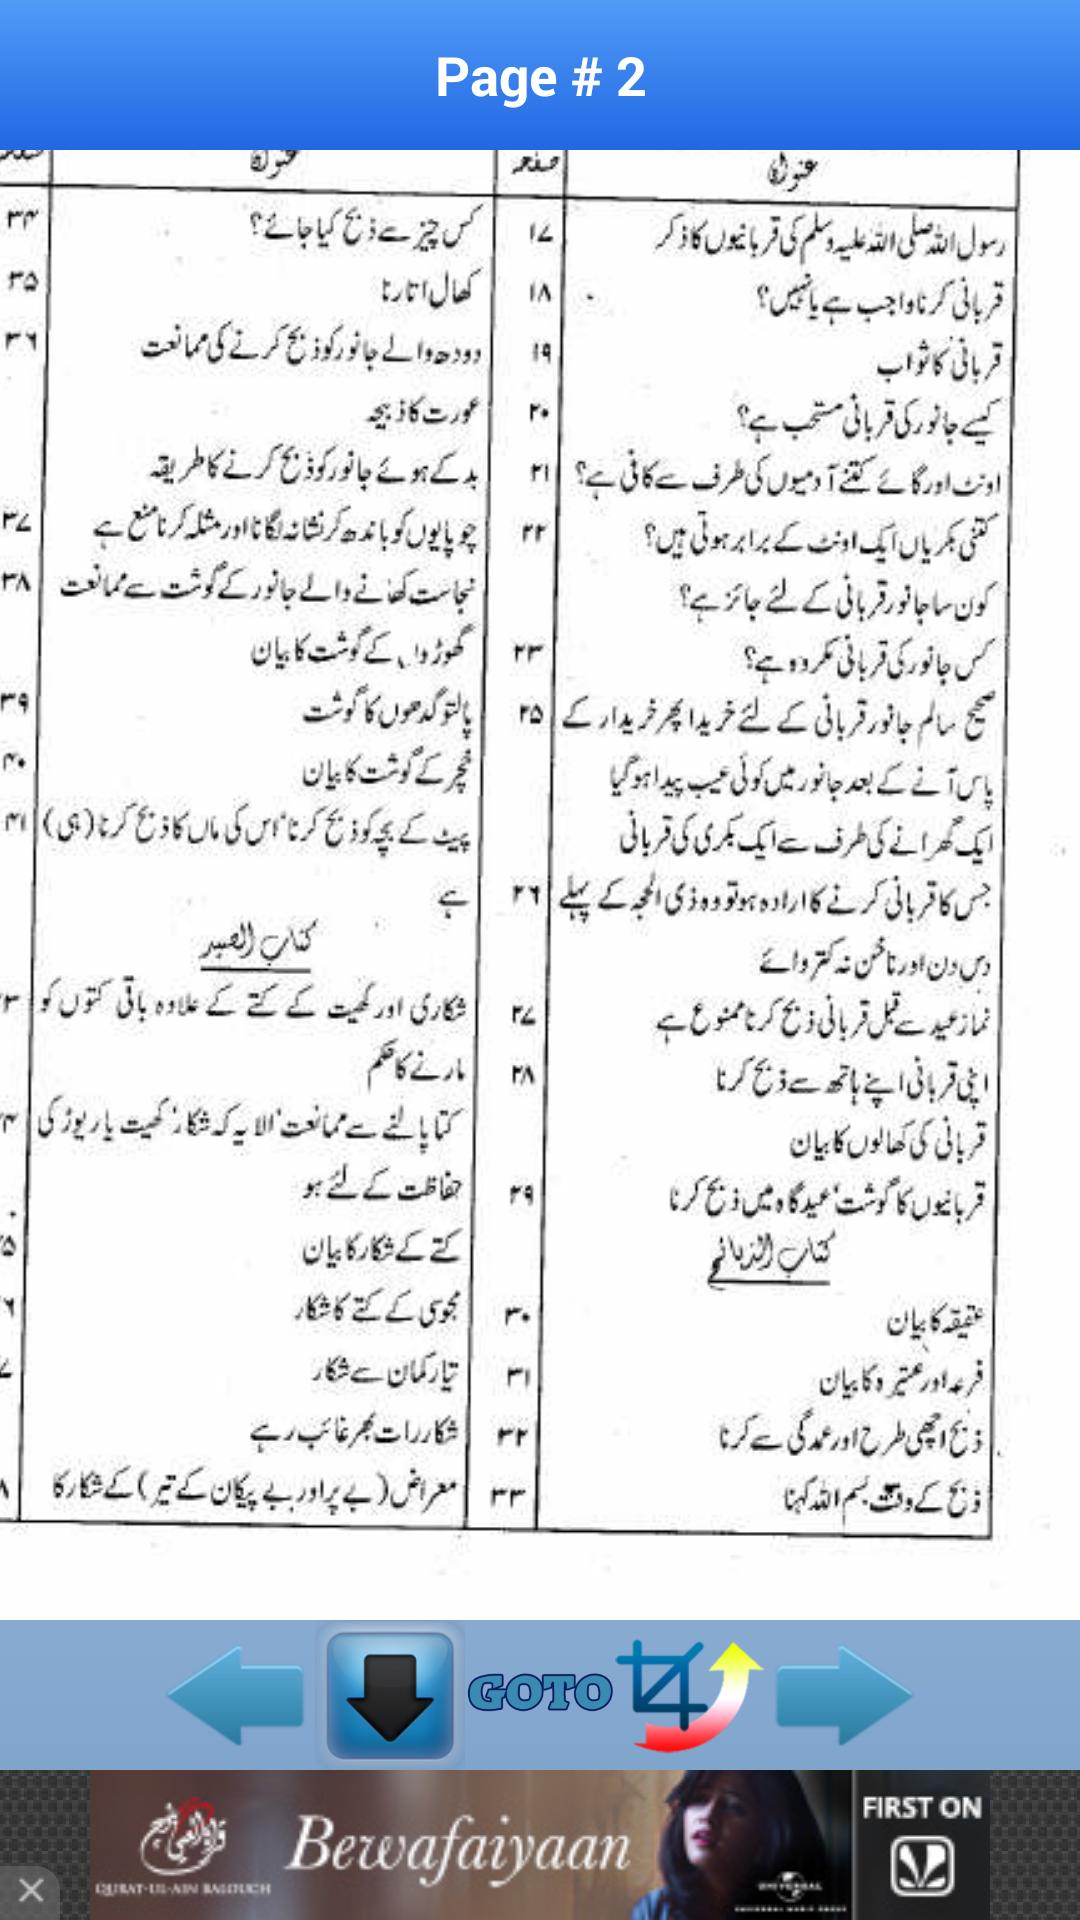 Page # 2
عنوان
صفحہ
رسول اللہ صلی اللہ علیہ وسلم کی قربانیوں کا ذکر ۱۷
قربانی کرنا واجب ہے یا نہیں؟ ۱۸
قربانی کا ثواب ۱۹
کیسے جانور کی قربانی مستحب ہے؟ ۲۰
اونٹ اور گائے کتنے آدمیوں کی طرف سے کافی ہے؟ ۲۱
کتنی بکریاں ایک اونٹ کے برابر ہوتی ہیں؟ ۲۲
کون سا جانور قربانی کے لئے جائز ہے؟
کس جانور کی قربانی مکروہ ہے؟ ۲۳
صحیح سالم جانور قربانی کے لئے خریدا پھر خریدار کے ۲۵
پاس آنے کے بعد جانور میں کوئی عیب پیدا ہو گیا
ایک گھرانے کی طرف سے ایک بکری کی قربانی
جس کا قربانی کرنے کا ارادہ ہو تو وہ ذی الحجہ کے پہلے ۲۶
دس دن اور ناخن نہ کتروائے
نماز عید سے قبل قربانی ذبح کرنا ممنوع ہے ۲۷
اپنی قربانی اپنے ہاتھ سے ذبح کرنا ۲۸
قربانی کی کھالوں کا بیان
قربانیوں کا گوشت‘ عیدگاہ میں ذبح کرنا ۲۹
کتاب الذبائح
عقیقہ کا بیان ۳۰
فرعہ اور عتیرہ کا بیان ۳۱
ذبح اچھی طرح اور عمدگی سے کرنا ۳۲
ذبح کے وقت بسم اللہ کہنا ۳۳
عنوان
صفحہ
کس چیز سے ذبح کیا جائے؟ ۳۴
کھال اتارنا ۳۵
دودھ والے جانور کو ذبح کرنے کی ممانعت ۳۶
عورت کا ذبیحہ
بدکے ہوئے جانور کو ذبح کرنے کا طریقہ
چوپایوں کو باندھ کر نشانہ لگانا اور مثلہ کرنا منع ہے ۳۷
نجاست کھانے والے جانور کے گوشت سے ممانعت ۳۸
گھوڑوں کے گوشت کا بیان
پالتو گدھوں کا گوشت ۳۹
خچر کے گوشت کا بیان ۴۰
پیٹ کے بچہ کو ذبح کرنا‘ اس کی ماں کا ذبح کرنا (ہی) ۴۱
ہے
کتاب الصید
شکاری اور کھیت کے کتے کے علاوہ باقی کتوں کو ۳
مارنے کا حکم
کتا پالنے سے ممانعت‘ الا یہ کہ شکار‘ کھیت یا ریوڑ کی ۴
حفاظت کے لئے ہو
کتے کے شکار کا بیان ۵
مجوسی کے کتے کا شکار ۶
تیار کمان سے شکار ۷
شکار رات بھر غائب رہے
معراض (بے پر اور بے پیکان کے تیر) کے شکار کا ۸
GOTO
QURAT-UL-AIN BALOUCH
Bewafaiyaan
UNIVERSAL
UNIVERSAL MUSIC GROUP
FIRST ON